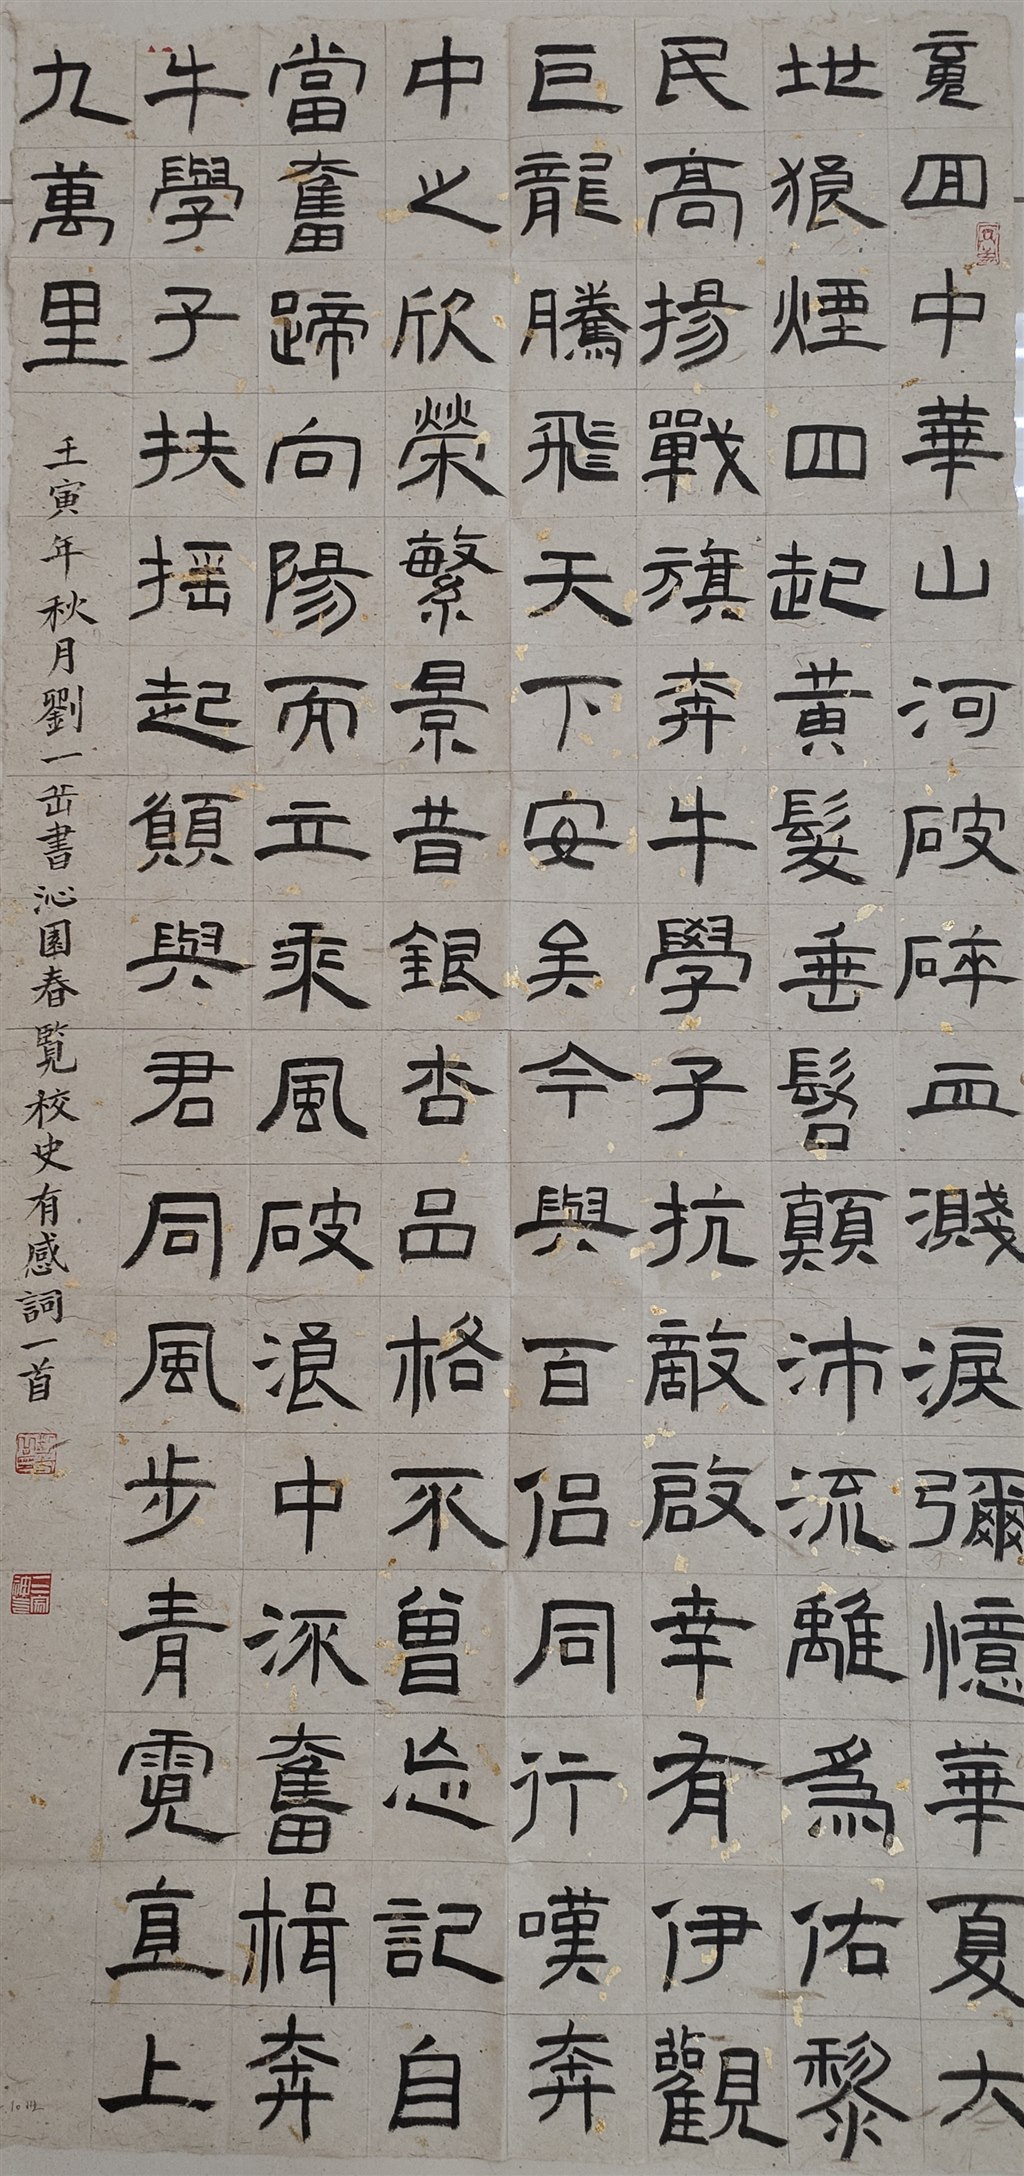 竟回中華山河破碎血濺淚彌憶華夏大
地狼煙四起黃髮垂髫顛沛流離為佑黎
民高揚戰旗奔牛學子抗敵啟幸有伊觀
巨龍騰飛天下安矣今與百侶同行嘆奔
中之欣榮繁景昔銀杏品格不曾忘記自
當奮蹄向陽而立乘風破浪中流奮楫奔
牛學子扶搖起願與君同風步青霓直上
九萬里
壬寅年秋月劉一岳書沁園春覽校史有感詞一首